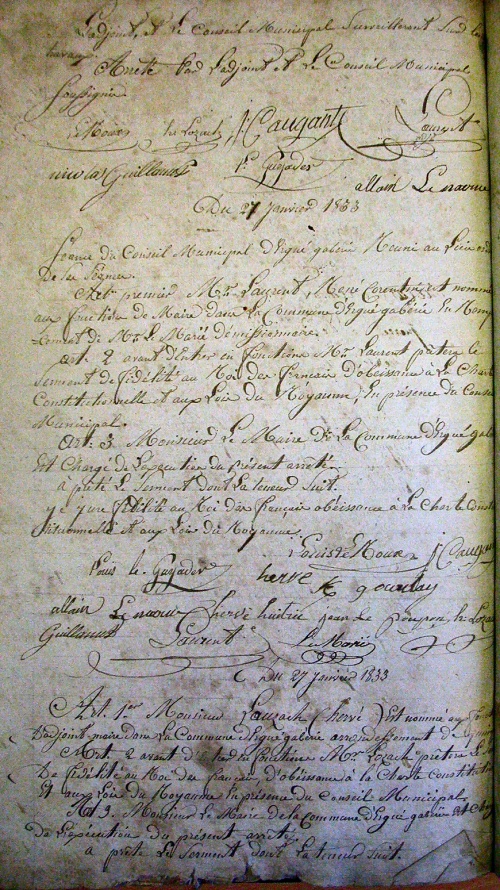 L'adjoint, et Le Conseil Municipal Surveilleront Sur les
travaux
Arrete par L'adjoint et Le Conseil Municipal
Soussigné
Le Roux he Lozach J: Caugant Laurent
nicolas Guillamet Ls Guyader
allain Le naour
Du 27 Janvier 1833
Seance du Conseil Municipal d'Ergué gabéric Reuni au Lieu ord
De Sa Séance.
Art. premier Mr. Laurent, René Corentin, est nommé
aux fonction de Maire dans La Commune d'Ergué gabéric En Remp
-lacement de Mr. Le Marié démissionnaire.
Art. 2 avant d'entrer en fonctions Mr. Laurent prêtera le
Serment de fidélité au Roi des français d'obeissance à La Charte
Constitutionnelle et aux Lois du Royaume, En présence du Conseil
Municipal.
Art. 3 Monsieur Le Maire de La Commune d'Ergué gabé
Est Chargé de L'execution du présent arreté.
a prêté Le Serment dont La teneur Suit.
je jure fidélité au Roi des français obéissance à La Charte Const
titutionnelle et aux Lois du Royaume.
Louis Le Roux J: Caugant
Louis le Guyader herve gourlay
allain Le naour hervé huitric jean Le Poupon he Lozach
Guillamet Laurent Le Marié
Du 27 Janvier 1833
Art. 1er Monsieur Lauzach (hervé) Est nommé aux fonc
D'adjoint-maire dans La Commune d'Ergué gabéric arrondissement de quimper
Art. 2 avant d'entrer en fonctions Mr. Lozach prêtera Le
De fidélité au Roi des français d'obéissance à la Charte Constitution
Et aux Lois du Royaume En présence du Conseil Municipal.
Art 3. Monsieur Le Maire de la Commune d'Ergué gabéric est Char
De L'execution du présent arreté.
a prêté Le Serment dont La teneur Suit.